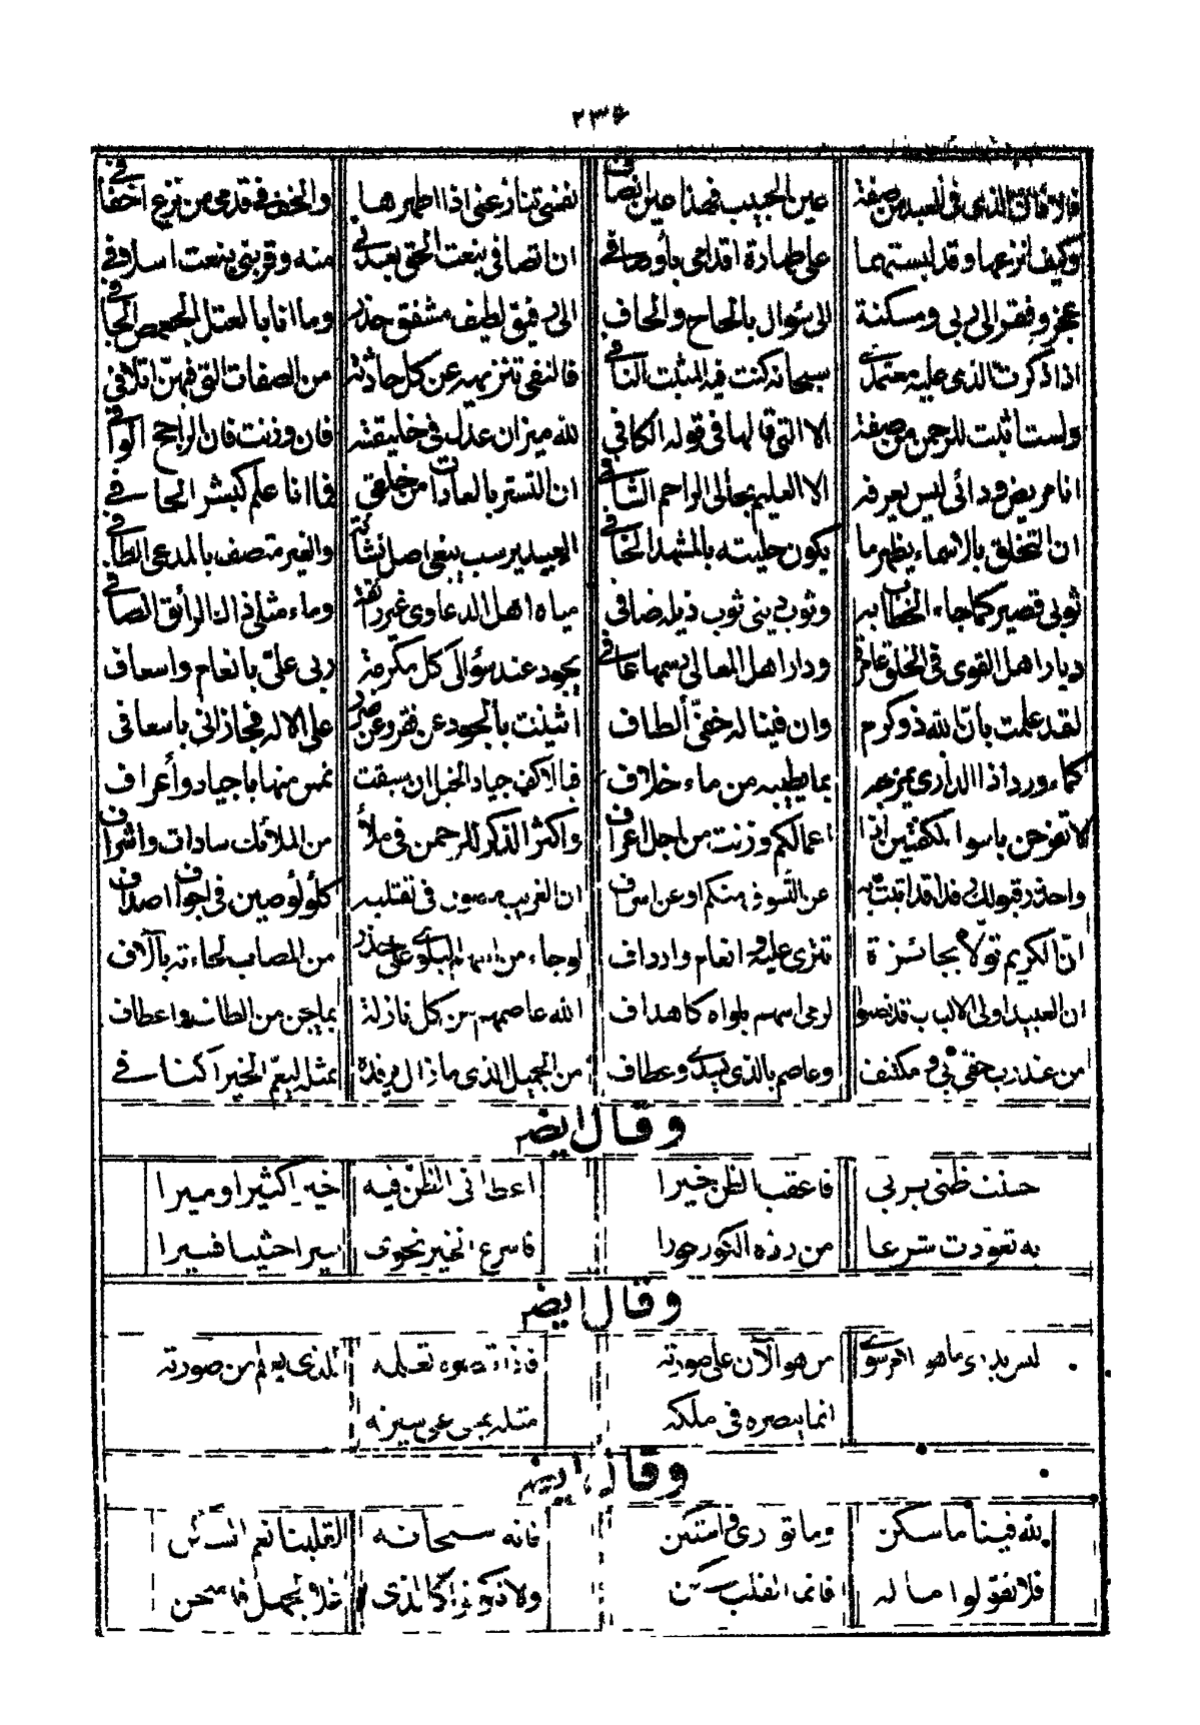 ٢٣٦
عين الحبيب فهذا عين انصافي نفسي تنازعني اذا اطهرها والخف في قدمي من نزع اخفافي
وكيف انزعها وقد لبستهما على طهارة اقدامي بأوصافي ان اتصافي بنعت الحق بعدني منه وقربني بنعت اسلافي
عجز وفقر الى ربي ومسكنة الى سؤال بالحاح والحاف الى رفيق لطيف مشفق حذر وما انا بالعتل الجعصـ الجافي
اذا ذكرت الذي عليه معتمدي سبحانه كنت فيه المثبت النافي فالنفي تنزيهه عن كل حادثة من الصفات التي فيهن اتلافي
ولست اثبت للرحمن من صفة الا التي قالها في قوله الكافي لله ميزان عدل في خليقته فان وزنت فان الراجح الوافي
انا مريض ودائي ليس يعرفه الا العليم بحالي الراحم الشافي ان التستر بالعادات من خلقي فما انا علم كبشر الحافي
ان التخلق بالاسماء يظهر ما يكون حليته بالمشهد الخافي العبيد يرسب يبغي اصل نشأته والغير متصف بالمدعي الطافي
ثوبي قصير كما جاء الخطاب به وثوب ديني ثوب ذيله ضافي مياه اهل الدعاوى غير رائقة وماء مثلي ذاك الرائق الصافي
ديار اهل القوى في الخلق عامرة ودار اهل المعالي رسمها عافي يجود عند سؤالي كل مكرمة ربي علي بانعام واسعاف
لقد علمت بان الله ذو كرم وان فينا له خفي ألطاف اثنيت بالجود عن فقر وعن ضرر على الاله فجازاني باسعافي
كماء ورد اذا الداري يمزجه بما يطيبه من ماء خلاف فبالاكف جياد الخيل ان سبقت تمس منها باجياد وأعراف
لا تفرحن باسوا اعمالكم وزنت من اجل اعراف واكثر الذكر للرحمن في ملأ من الملائك سادات واشراف
واحذر قبولك عن التسوف منكم او عن اسراف ان الغريب مصون في تقلبه كلؤلؤ صين في اجواف اصداف
ان الكريم تولاه بجائزة تترى عليه وانعام وارداف لو جاء من اسهم البلوى على حذر من المصاب لجاءته بآلاف
ان العبيد اولى الالباب قد نصبوا لرمي اسهم بلواه كاهداف الله عاصمهم من كل نازلة بما يجن من الطاف واعطاف
من عند رب حفي بي ومكتنف وعاصم بالذي يسدي وعطاف من الجميل الذي ما زال يرفده بمثله ليعم الخير اكنافي
وقال ايضا
حسنت ظني بربي فاعقب الظن خيرا اعطاني الظن فيه خيرا كثيرا وميرا
به تعودت شرعا من رده الكور حورا فاسرع الخير نحوي سيرا حثيثا فسيرا
وقال ايضا
ليس يدري ما هو الامر سوى من هو الآن على صورته فاذا تعلمه الذي يعلم من صورته
انما يبصره في ملكه مثله يمشي على سيرته
وقال ايضا
لله فينا ما سكن وما توارى واستكن فانه سبحانه لقلبنا نعم السكن
فلا تقولوا ما له فانما القلب سكن ولا تكونوا كالذي